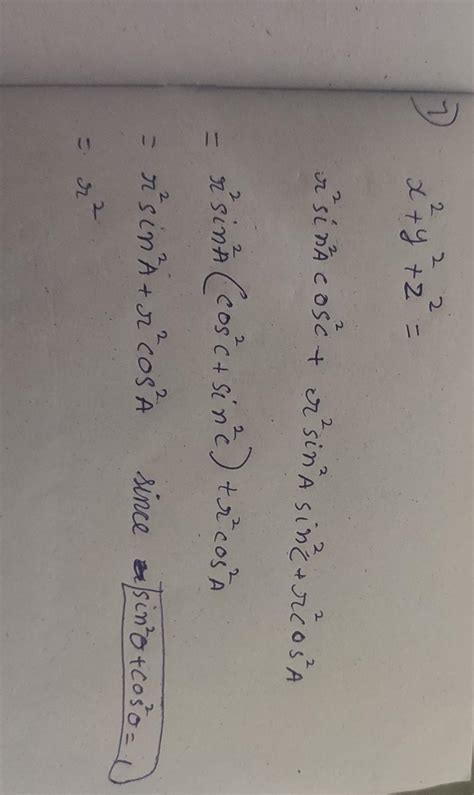 7)
x²+y²+z² =
r²sin²A cos²C + r²sin²A sin²C + r²cos²A
= r²sin²A (cos²C + sin²C) + r²cos²A
= r²sin²A + r²cos²A since sin²θ+cos²θ=1
= r²